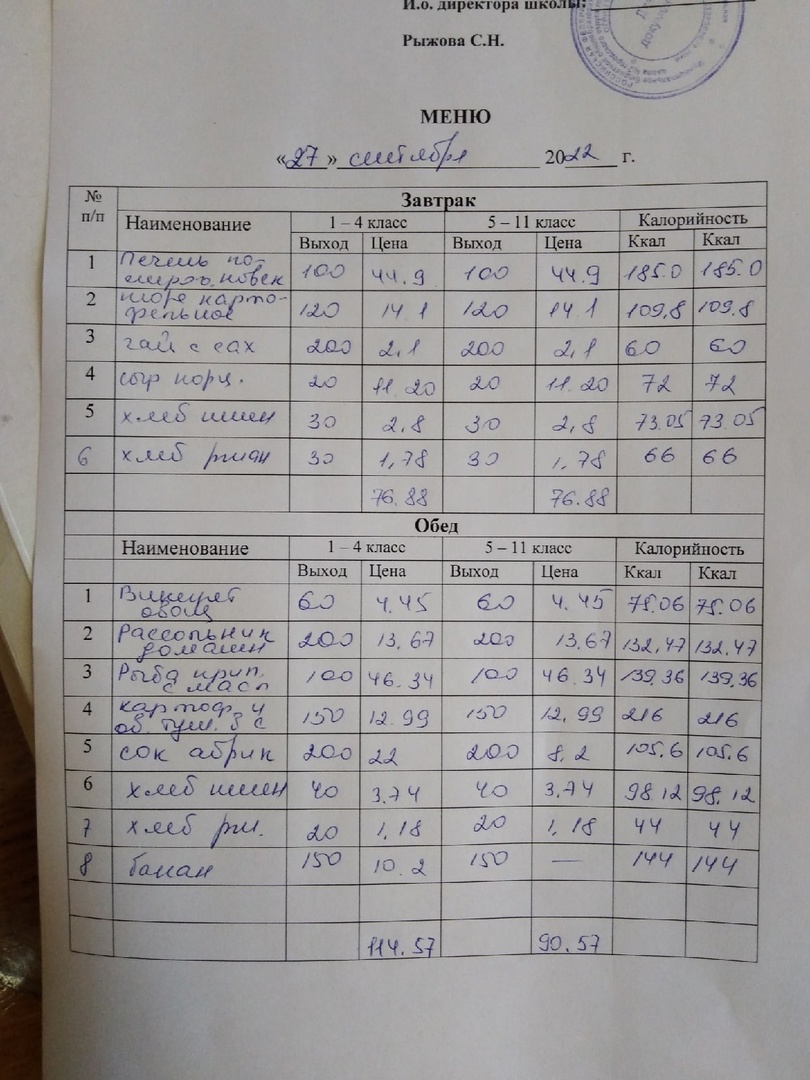 И.о. директора школы:
Рыжова С.Н.
МЕНЮ
«27» сентября 2022 г.
№ п/п Завтрак
Наименование 1 – 4 класс 5 – 11 класс Калорийность
Выход Цена Выход Цена Ккал Ккал
1 Печень по- 100 44.9 100 44.9 185.0 185.0
2 пюре карто- 120 14 1 120 14 1 109,8 109.8
фельное
3 чай с сах 200 2,1 200 2,1 60 60
4 сыр порц. 20 11.20 20 11.20 72 72
5 хлеб пшен 30 2,8 30 2,8 73.05 73.05
6 хлеб ржан 30 1,78 30 1,78 66 66
76.88 76.88
Обед
Наименование 1 – 4 класс 5 – 11 класс Калорийность
Выход Цена Выход Цена Ккал Ккал
1 Винегрет 60 4.45 60 4.45 75.06 75.06
овощ
2 Рассольник 200 13,67 200 13,67 132,47 132.47
домашн
3 Рыба прип. 100 46.34 100 46.34 139,36 139,36
с масл
4 картоф. и 150 12.99 150 12,99 216 216
ов. туш. в с
5 сок абрик 200 22 200 8,2 105.6 105.6
6 хлеб пшен 40 3.74 40 3,74 98.12 98,12
7 хлеб рж. 20 1,18 20 1,18 44 44
8 банан 150 10.2 150 — 144 144
114.57 90.57